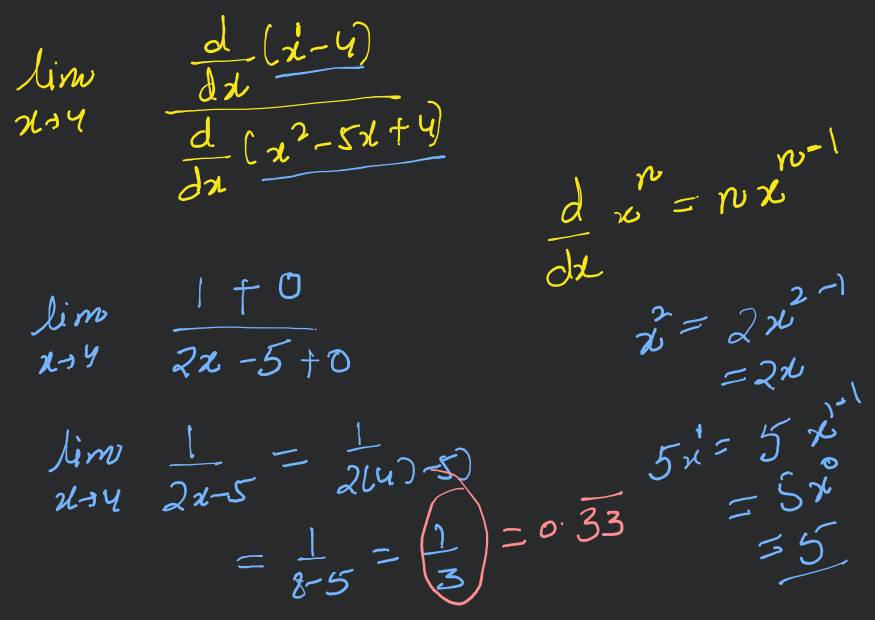 lim x→4 d/dx (x¹ - 4) / d/dx (x² - 5x + 4)
d/dx xⁿ = n xⁿ⁻¹
lim x→4 1 + 0 / 2x - 5 + 0
x² = 2x²⁻¹
= 2x
lim x→4 1 / 2x-5 = 1 / 2(4)-5)
= 1 / 8-5 = 1 / 3 = 0.3̅3̅
5x¹ = 5 x¹⁻¹
= 5x⁰
= 5